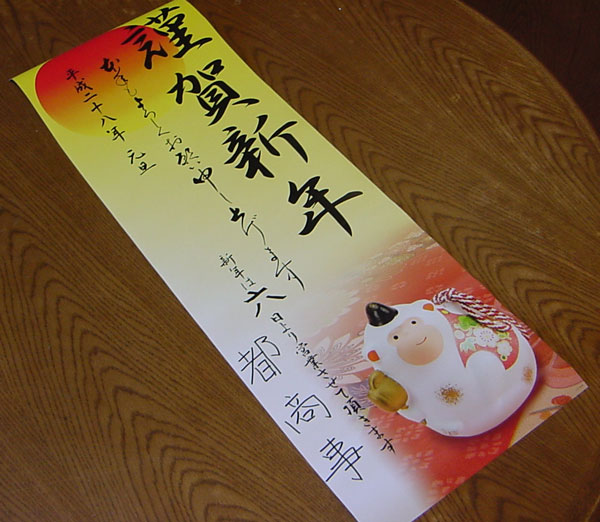 謹賀新年
本年もよろしくお願い申し上げます
平成二十八年 元旦
新年は六日より営業させて頂きます
六都商事